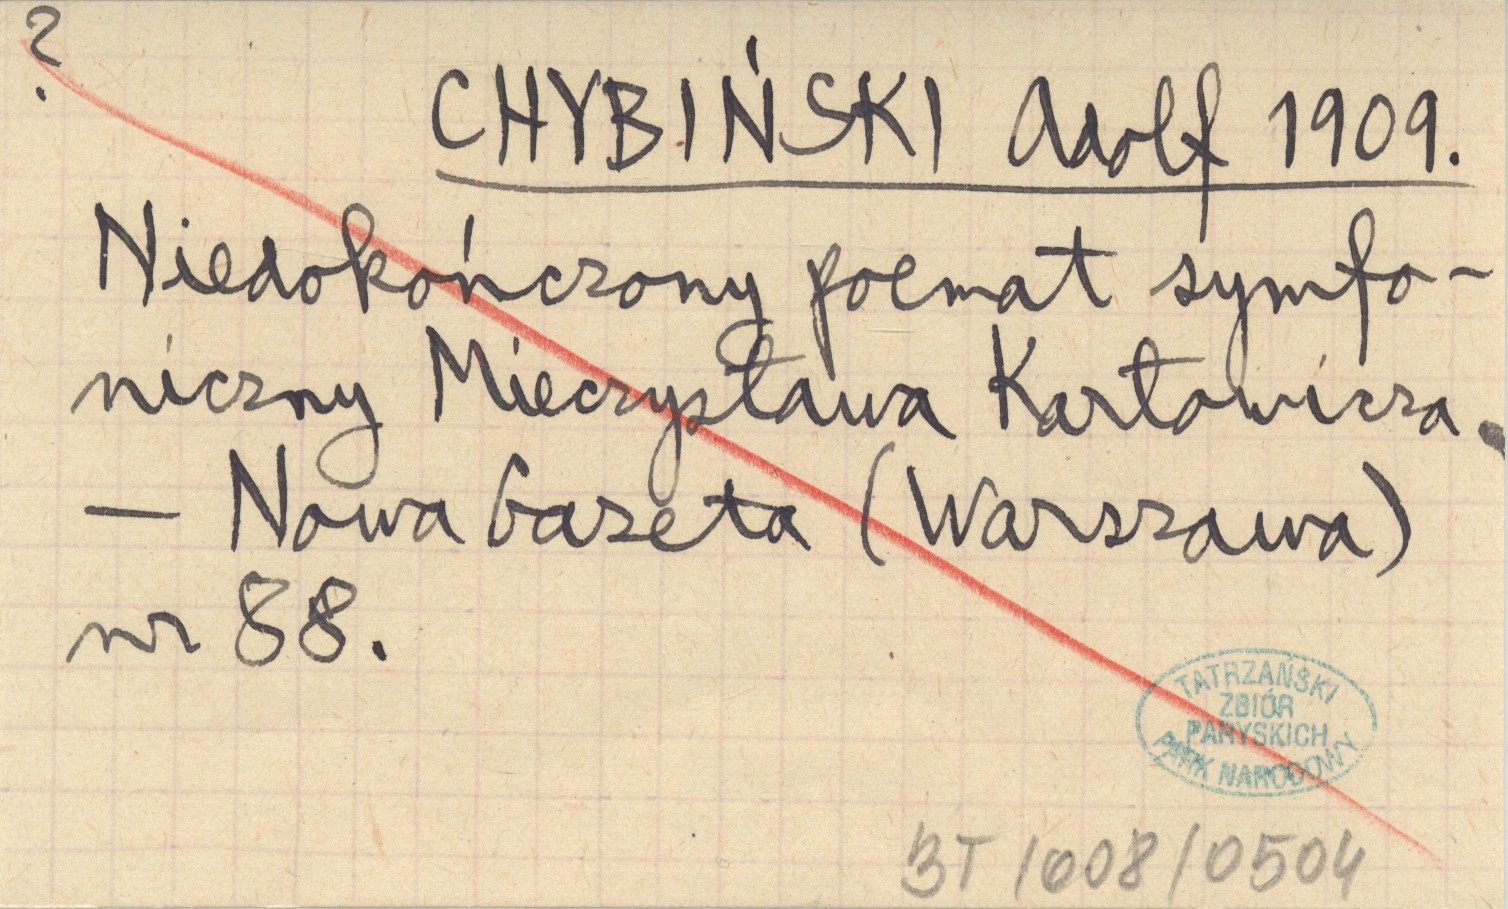 ?
CHYBIŃSKI Adolf 1909.
Niedokończony poemat symfo-
niczny Mieczysława Karłowicza.
— Nowa Gazeta (Warszawa)
nr 88.
TATRZAŃSKI
ZBIÓR
PARYSKICH
PARK NARODOWY
BT/608/0504